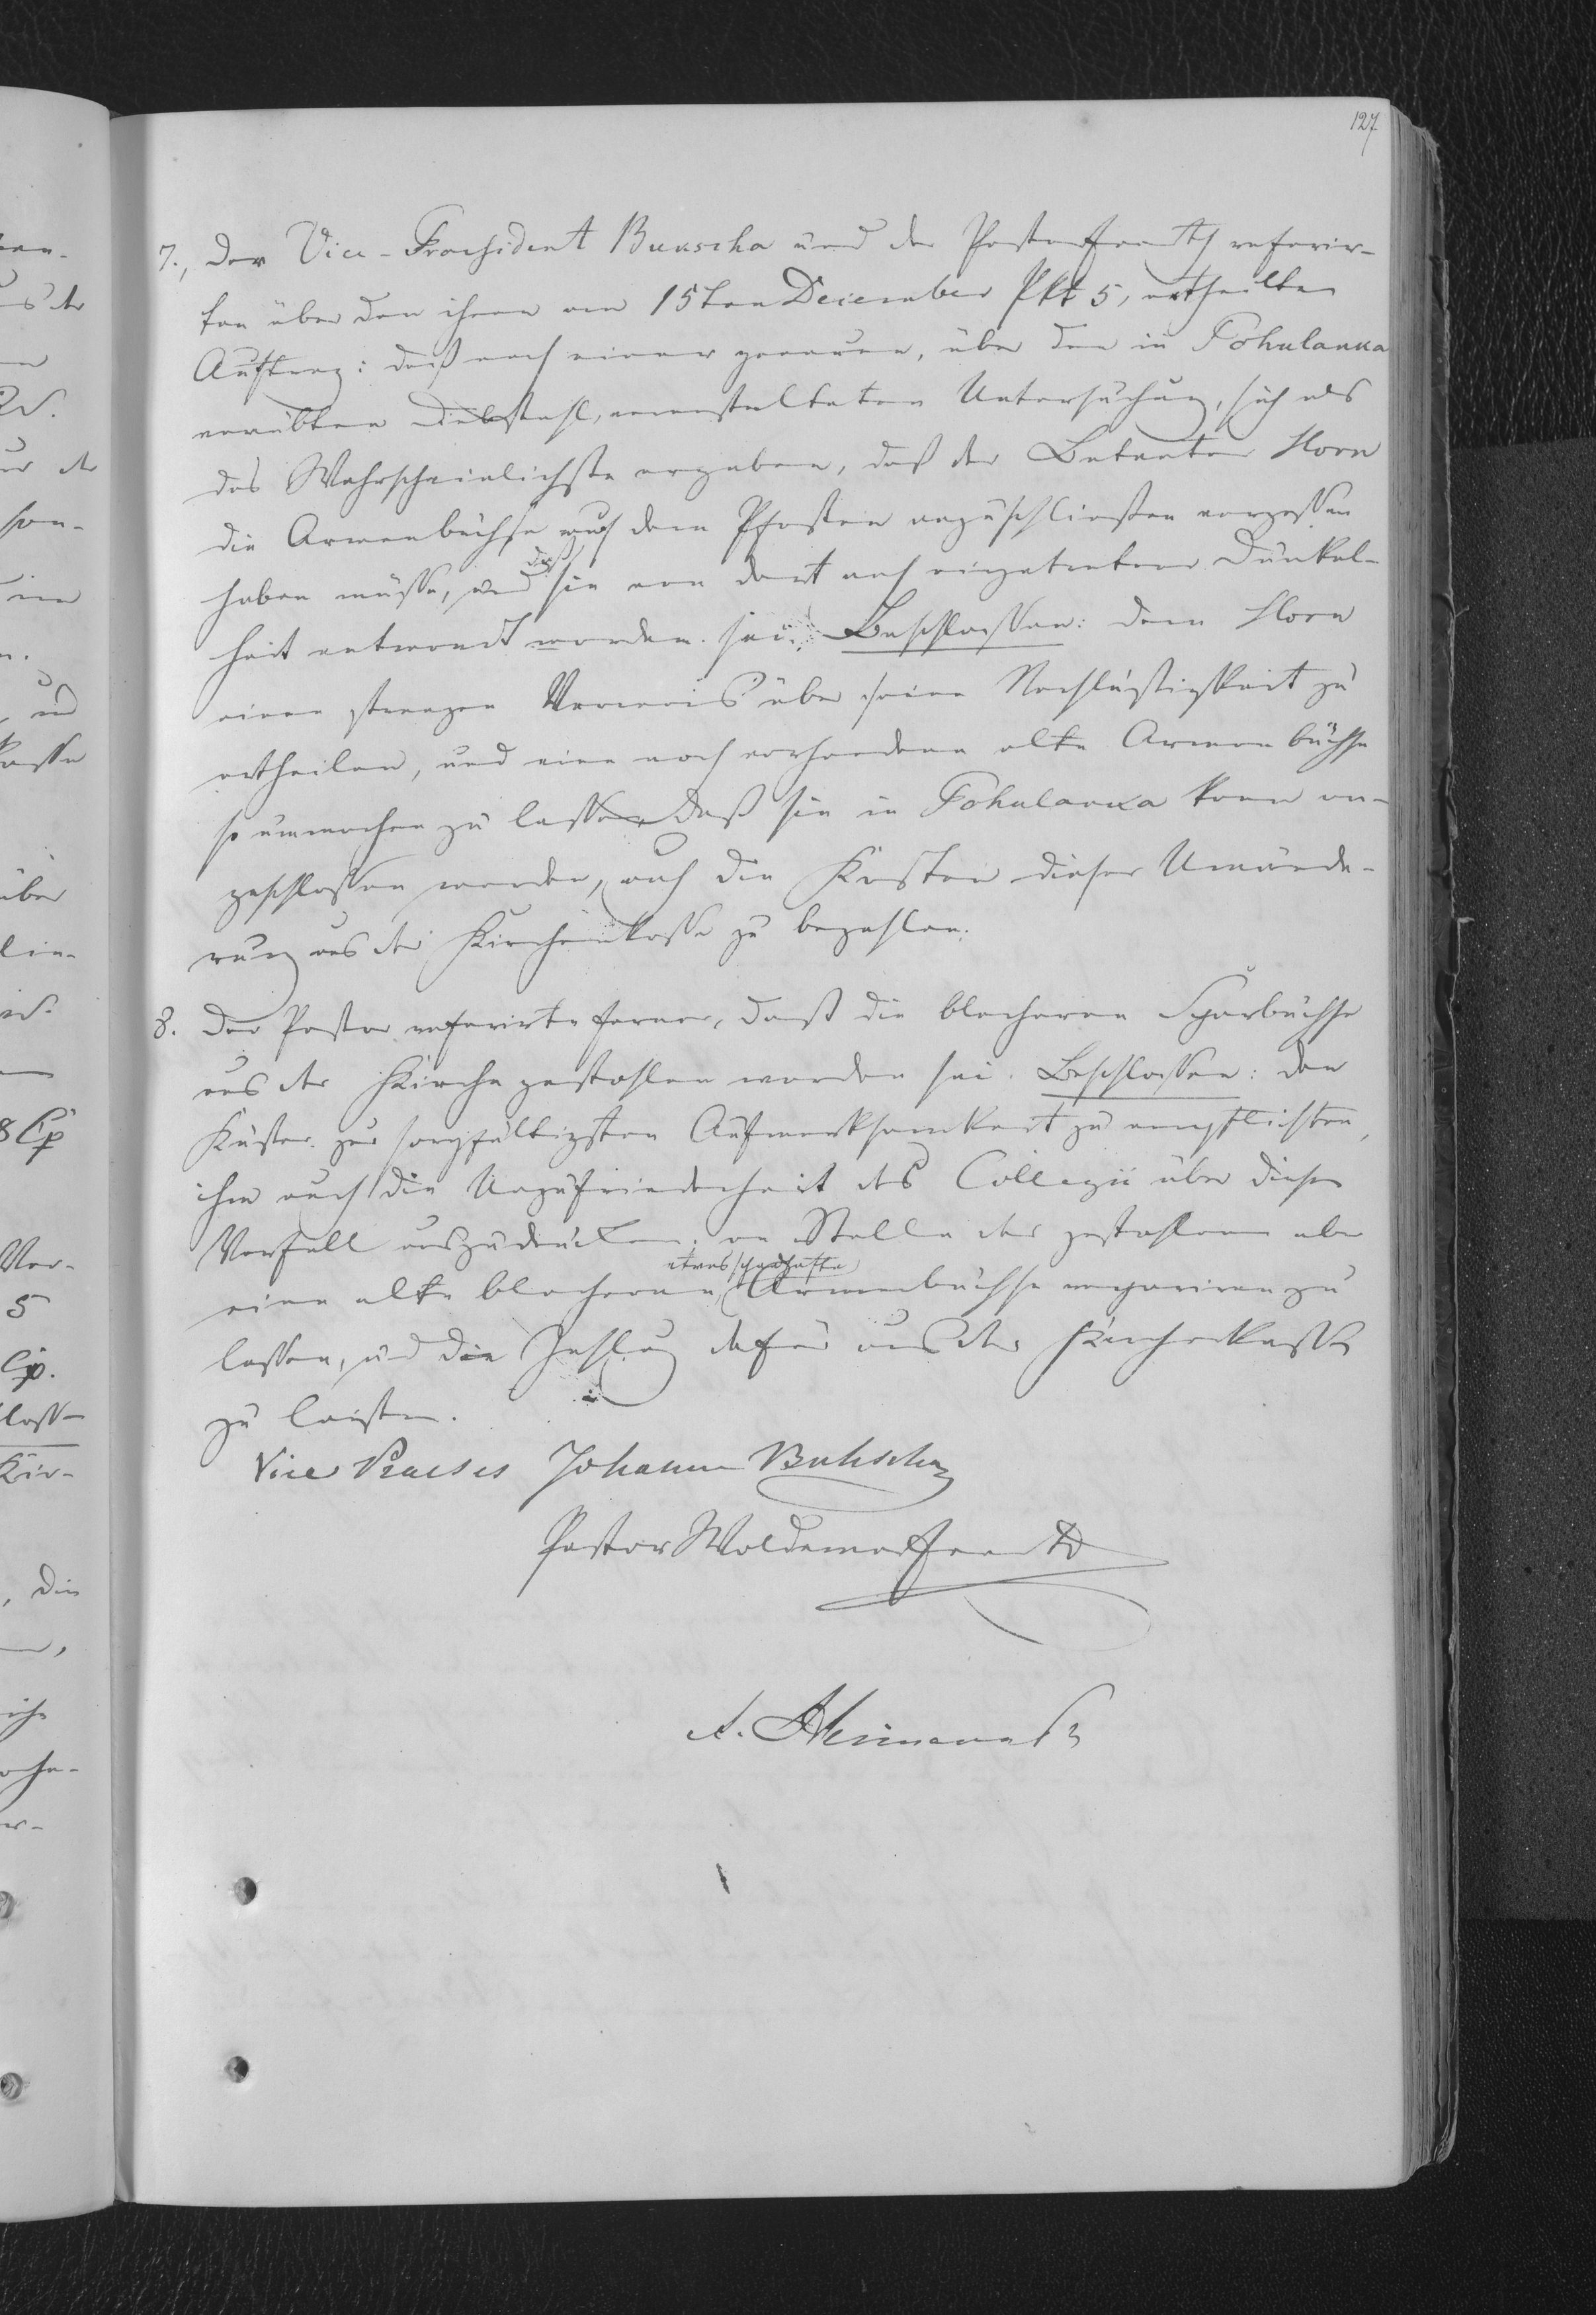 127
7., Der Vice-Praesident Bukscha und der Pastor Everth referir-
ten über den ihnen am 15ten December Pkt 5, ertheilten
Auftrag: daß nach einer genauen, über den in Pohulanka
verübten Diebstahl, veranstalteten Untersuchung, sich als
das Wahrscheinlichste ergeben, daß der Bekannte Horn
die Armenbüchse auf dem Pfosten anzuschließen vergessen
haben müsse, und daß sie von dort nach eingetretener Dunkel-
heit entwandt worden sei. Beschlossen: dem Horn
einen strengen Verweis über seine Nachlässigkeit zu
ertheilen, und eine noch vorhandene alte Armenbüchse
so ummachen zu lassen, daß sie in Pohulanka kann an-
geschlossen werden, auch die Kosten dieser Umände-
rung aus der Kirchenkasse zu bezahlen.
8. Der Pastor referirte ferner, daß die blecherne Sparbüchse
aus der Kirche gestohlen worden sei. Beschlossen: den
Küster zur sorgfältigsten Aufmerksamkeit zu verpflichten,
ihm auch die Unzufriedenheit des Collegii über diesen
Vorfall auszudrücken; an Stelle der gestohlenen aber
eine alte blecherne, etwas schadhafte Armenbüchse repariren zu
lassen, und die Zahlung dafür aus der Kirchenkasse
zu leisten.
Vice Praeses Johann Bukscha
Pastor Woldemar Everth
A.